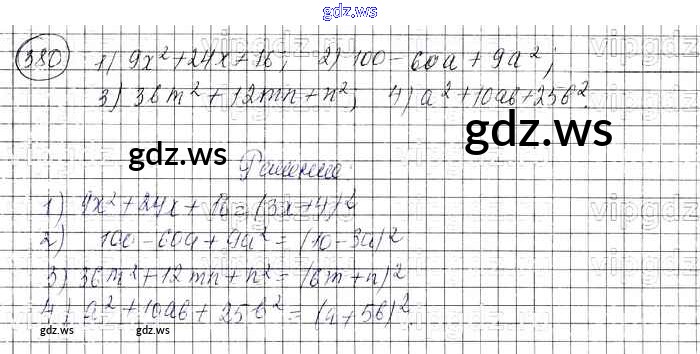 gdz.ws
380 1) 9x² + 24x + 16; 2) 100 - 60a + 9a²;
3) 36m² + 12mn + n²; 4) a² + 10ab + 25b².
gdz.ws gdz.ws
Решение:
1) 9x² + 24x + 16 = (3x + 4)²
2) 100 - 60a + 9a² = (10 - 3a)²
3) 36m² + 12mn + n² = (6m + n)²
4) a² + 10ab + 25b² = (a + 5b)².
gdz.ws gdz.ws